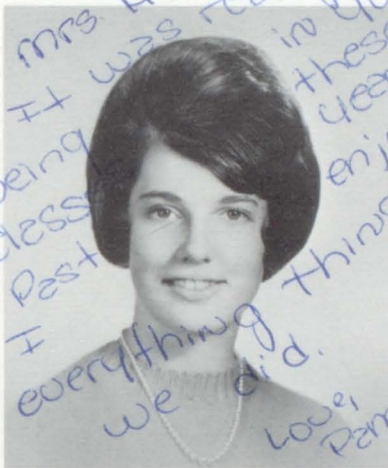 Mrs.
It was
being in
classes these
past yea
I enj
everything thing
we did.
Love,
Pam